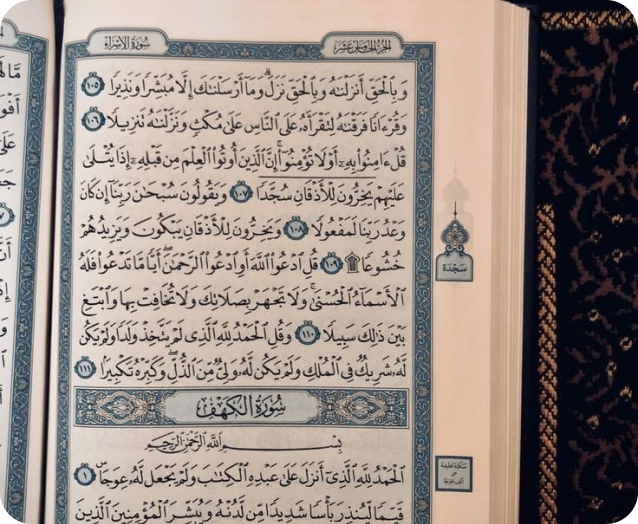 سُورَةُ الإِسْرَاءِ
الجُزْءُ الخَامِسَ عَشَرَ
وَبِٱلۡحَقِّ أَنزَلۡنَٰهُ وَبِٱلۡحَقِّ نَزَلَۗ وَمَآ أَرۡسَلۡنَٰكَ إِلَّا مُبَشِّرٗا وَنَذِيرٗا ١٠٥
وَقُرۡءَانٗا فَرَقۡنَٰهُ لِتَقۡرَأَهُۥ عَلَى ٱلنَّاسِ عَلَىٰ مُكۡثٖ وَنَزَّلۡنَٰهُ تَنزِيلٗا ١٠٦
قُلۡ ءَامِنُواْ بِهِۦٓ أَوۡ لَا تُؤۡمِنُوٓاْۚ إِنَّ ٱلَّذِينَ أُوتُواْ ٱلۡعِلۡمَ مِن قَبۡلِهِۦٓ إِذَا يُتۡلَىٰ
عَلَيۡهِمۡ يَخِرُّونَۤ لِلۡأَذۡقَانِۤ سُجَّدٗاۤ ١٠٧ وَيَقُولُونَ سُبۡحَٰنَ رَبِّنَآ إِن كَانَ
وَعۡدُ رَبِّنَا لَمَفۡعُولٗا ١٠٨ وَيَخِرُّونَ لِلۡأَذۡقَانِ يَبۡكُونَ وَيَزِيدُهُمۡ
خُشُوعٗا۩ ١٠٩ قُلِ ٱدۡعُواْ ٱللَّهَ أَوِ ٱدۡعُواْ ٱلرَّحۡمَٰنَۖ أَيّٗا مَّا تَدۡعُواْ فَلَهُ
ٱلۡأَسۡمَآءُ ٱلۡحُسۡنَىٰۚ وَلَا تَجۡهَرۡ بِصَلَاتِكَ وَلَا تُخَافِتۡ بِهَا وَٱبۡتَغِ
بَيۡنَ ذَٰلِكَ سَبِيلٗا ١١٠ وَقُلِ ٱلۡحَمۡدُ لِلَّهِ ٱلَّذِي لَمۡ يَتَّخِذۡ وَلَدٗا وَلَمۡ يَكُن
لَّهُۥ شَرِيكٞ فِي ٱلۡمُلۡكِ وَلَمۡ يَكُن لَّهُۥ وَلِيّٞ مِّنَ ٱلذُّلِّۖ وَكَبِّرۡهُ تَكۡبِيرَۢا ١١١
سُورَةُ الكَهۡفِ
بِسۡمِ ٱللَّهِ ٱلرَّحۡمَٰنِ ٱلرَّحِيمِ
ٱلۡحَمۡدُ لِلَّهِ ٱلَّذِيٓ أَنزَلَ عَلَىٰ عَبۡدِهِ ٱلۡكِتَٰبَ وَلَمۡ يَجۡعَل لَّهُۥ عِوَجَاۜ ١
قَيِّمٗا لِّيُنذِرَ بَأۡسٗا شَدِيدٗا مِّن لَّدُنۡهُ وَيُبَشِّرَ ٱلۡمُؤۡمِنِينَ ٱلَّذِينَ
سَجْدَة